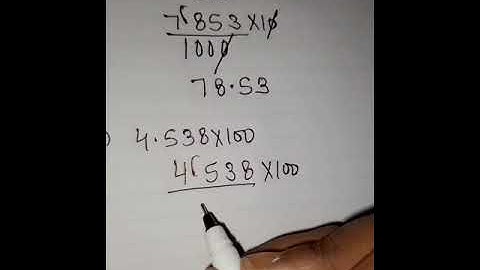 7853×10
1000
78.53
) 4.538×100
4538×100